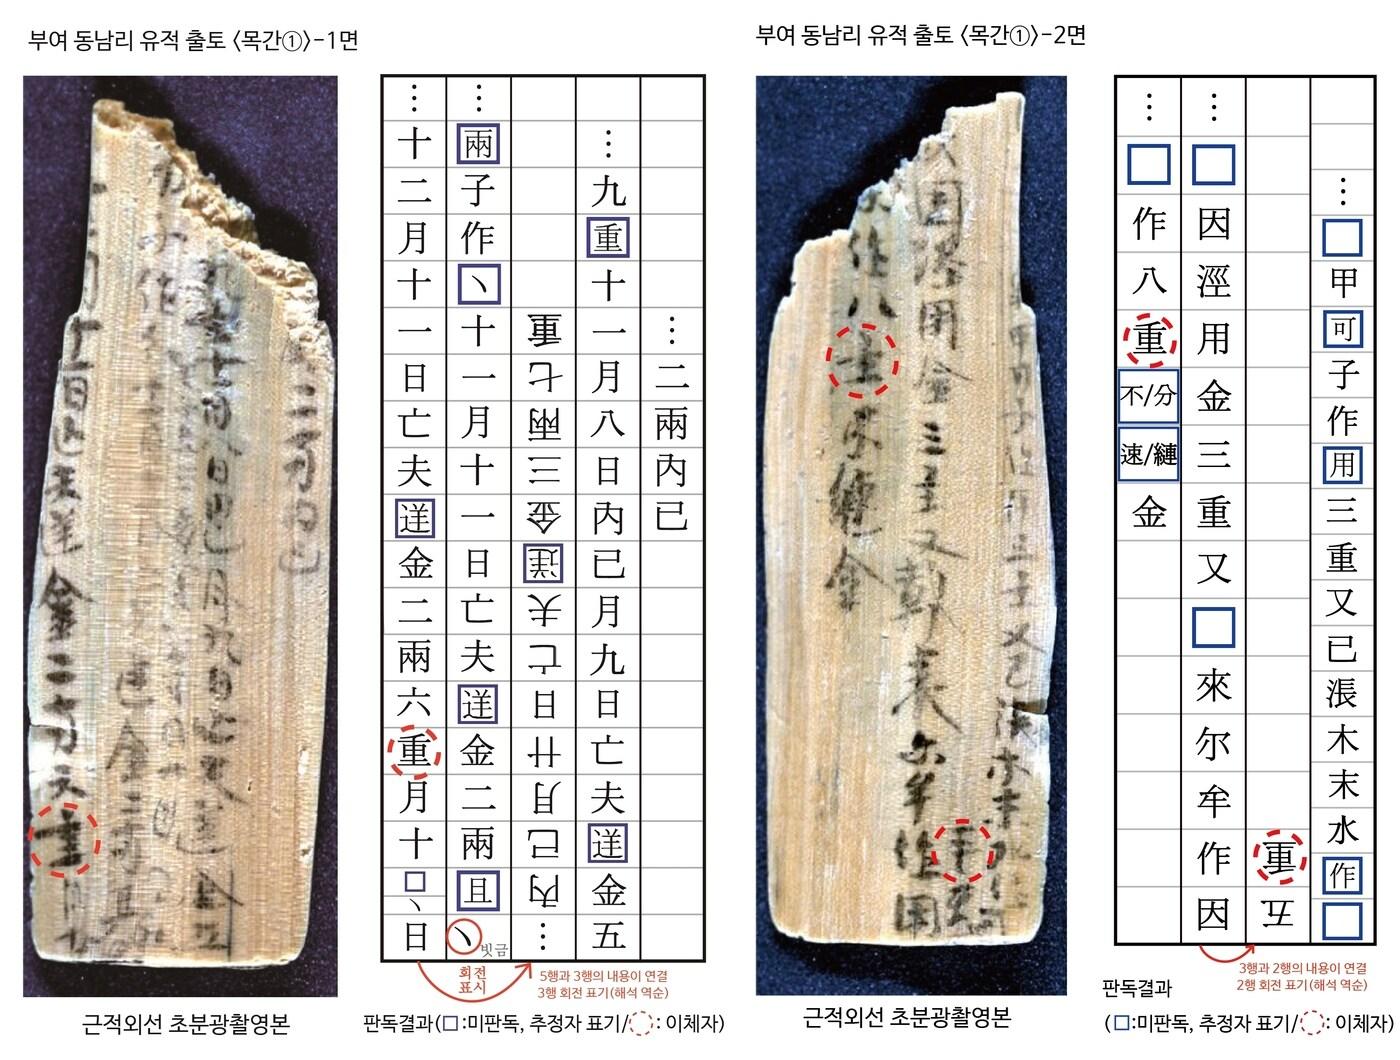 부여 동남리 유적 출토 〈목간①〉-1면
⋮二兩內已
⋮九重十一月八日內已月九日亡夫逆金五
⋮內已月廿日亡夫逆金三兩七重
⋮兩子作丶十一月十一日亡夫逆金二兩且丶
빗금
⋮十二月十一日亡夫逆金二兩六重月十□丶日
회전
표시
5행과 3행의 내용이 연결
3행 회전 표기(해석 역순)
근적외선 초분광촬영본
판독결과(□:미판독, 추정자 표기/◌: 이체자)
부여 동남리 유적 출토 〈목간①〉-2면
⋮□甲可子作用三重又已涱木末水作□
五重
⋮□因涇用金三重又□來尔牟作因
⋮□作八重不/分速/縺金
3행과 2행의 내용이 연결
2행 회전 표기(해석 역순)
근적외선 초분광촬영본
판독결과
(□:미판독, 추정자 표기/◌: 이체자)